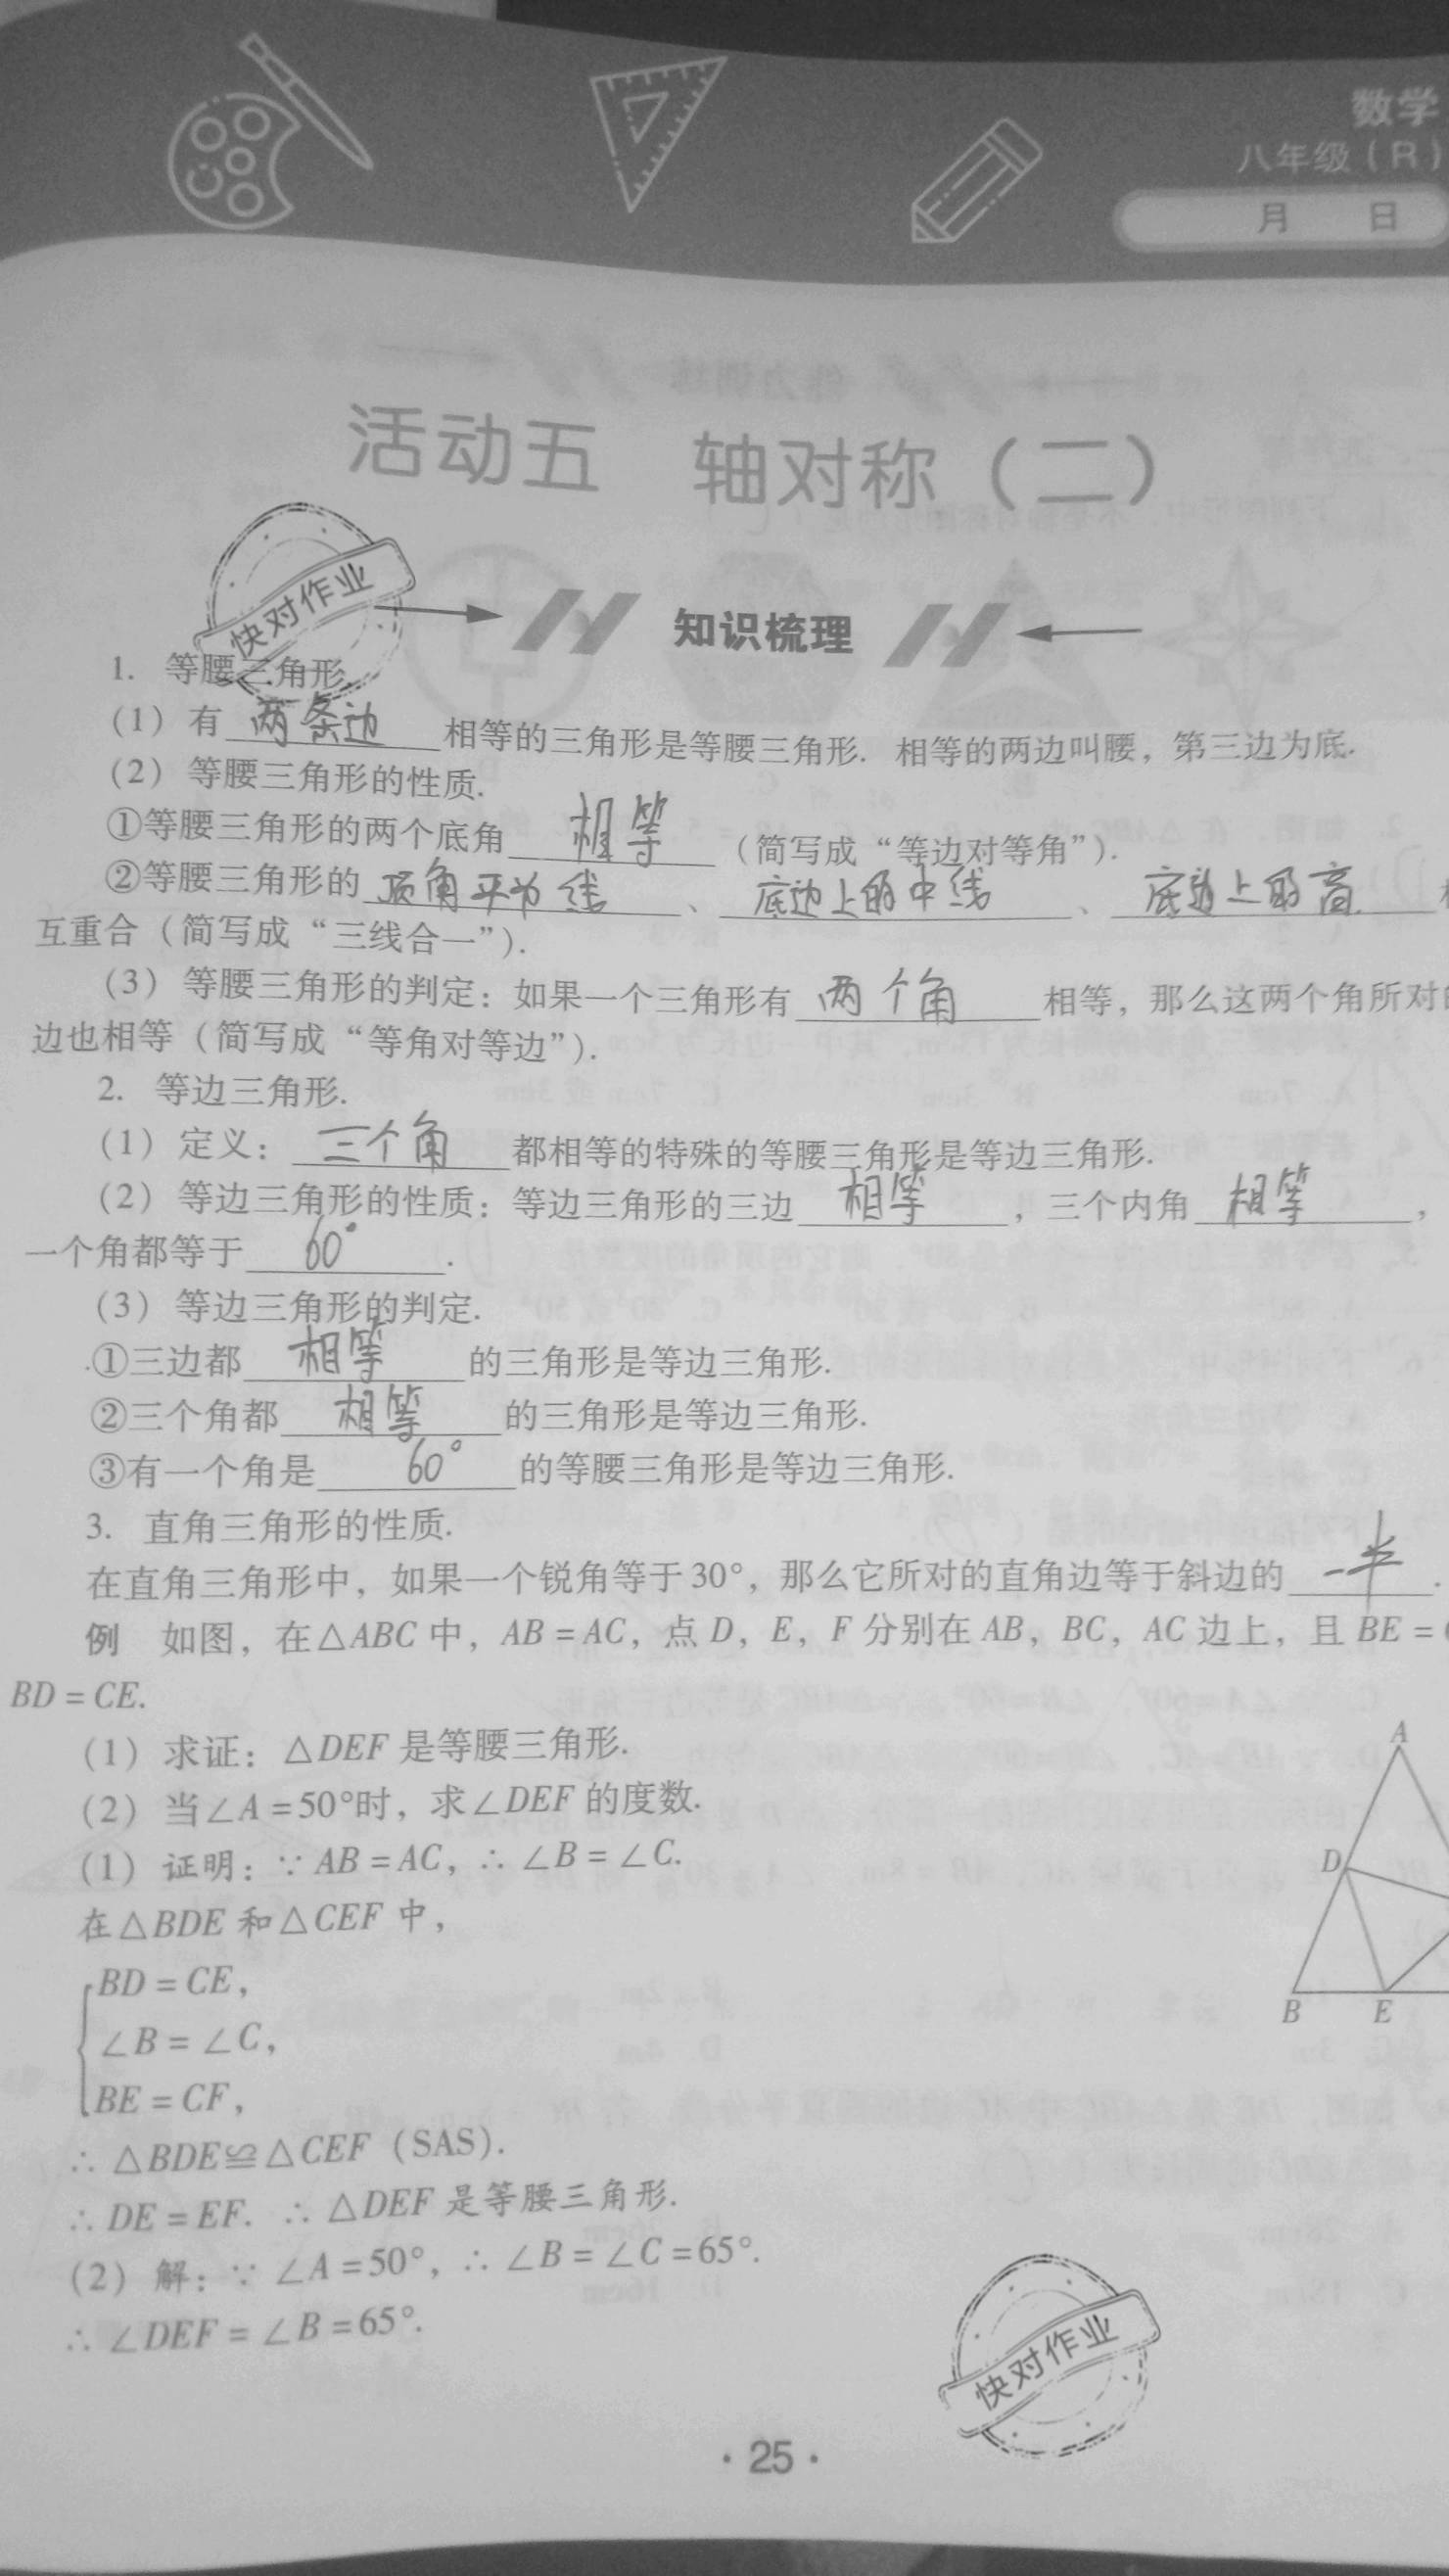 数学
八年级（R）
月 日
活动五 轴对称（二）
快对作业
知识梳理
1. 等腰三角形.
（1）有 两条边 相等的三角形是等腰三角形. 相等的两边叫腰，第三边为底.
（2）等腰三角形的性质.
①等腰三角形的两个底角 相等 （简写成“等边对等角”）.
②等腰三角形的 顶角平分线 、 底边上的中线 、 底边上的高
互重合（简写成“三线合一”）.
（3）等腰三角形的判定：如果一个三角形有 两个角 相等，那么这两个角所对
边也相等（简写成“等角对等边”）.
2. 等边三角形.
（1）定义： 三个角 都相等的特殊的等腰三角形是等边三角形.
（2）等边三角形的性质：等边三角形的三边 相等 ，三个内角 相等 ，
一个角都等于 60° .
（3）等边三角形的判定.
①三边都 相等 的三角形是等边三角形.
②三个角都 相等 的三角形是等边三角形.
③有一个角是 60° 的等腰三角形是等边三角形.
3. 直角三角形的性质.
在直角三角形中，如果一个锐角等于30°，那么它所对的直角边等于斜边的 一半 .
例 如图，在△ABC中，AB=AC，点D，E，F分别在AB，BC，AC边上，且BE=
BD=CE.
（1）求证：△DEF是等腰三角形.
（2）当∠A=50°时，求∠DEF的度数.
（1）证明：∵AB=AC，∴∠B=∠C.
在△BDE和△CEF中，
BD=CE，
∠B=∠C，
BE=CF，
∴△BDE≌△CEF（SAS）.
∴DE=EF. ∴△DEF是等腰三角形.
（2）解：∵∠A=50°，∴∠B=∠C=65°.
∴∠DEF=∠B=65°.
A
D
B E
快对作业
·25·